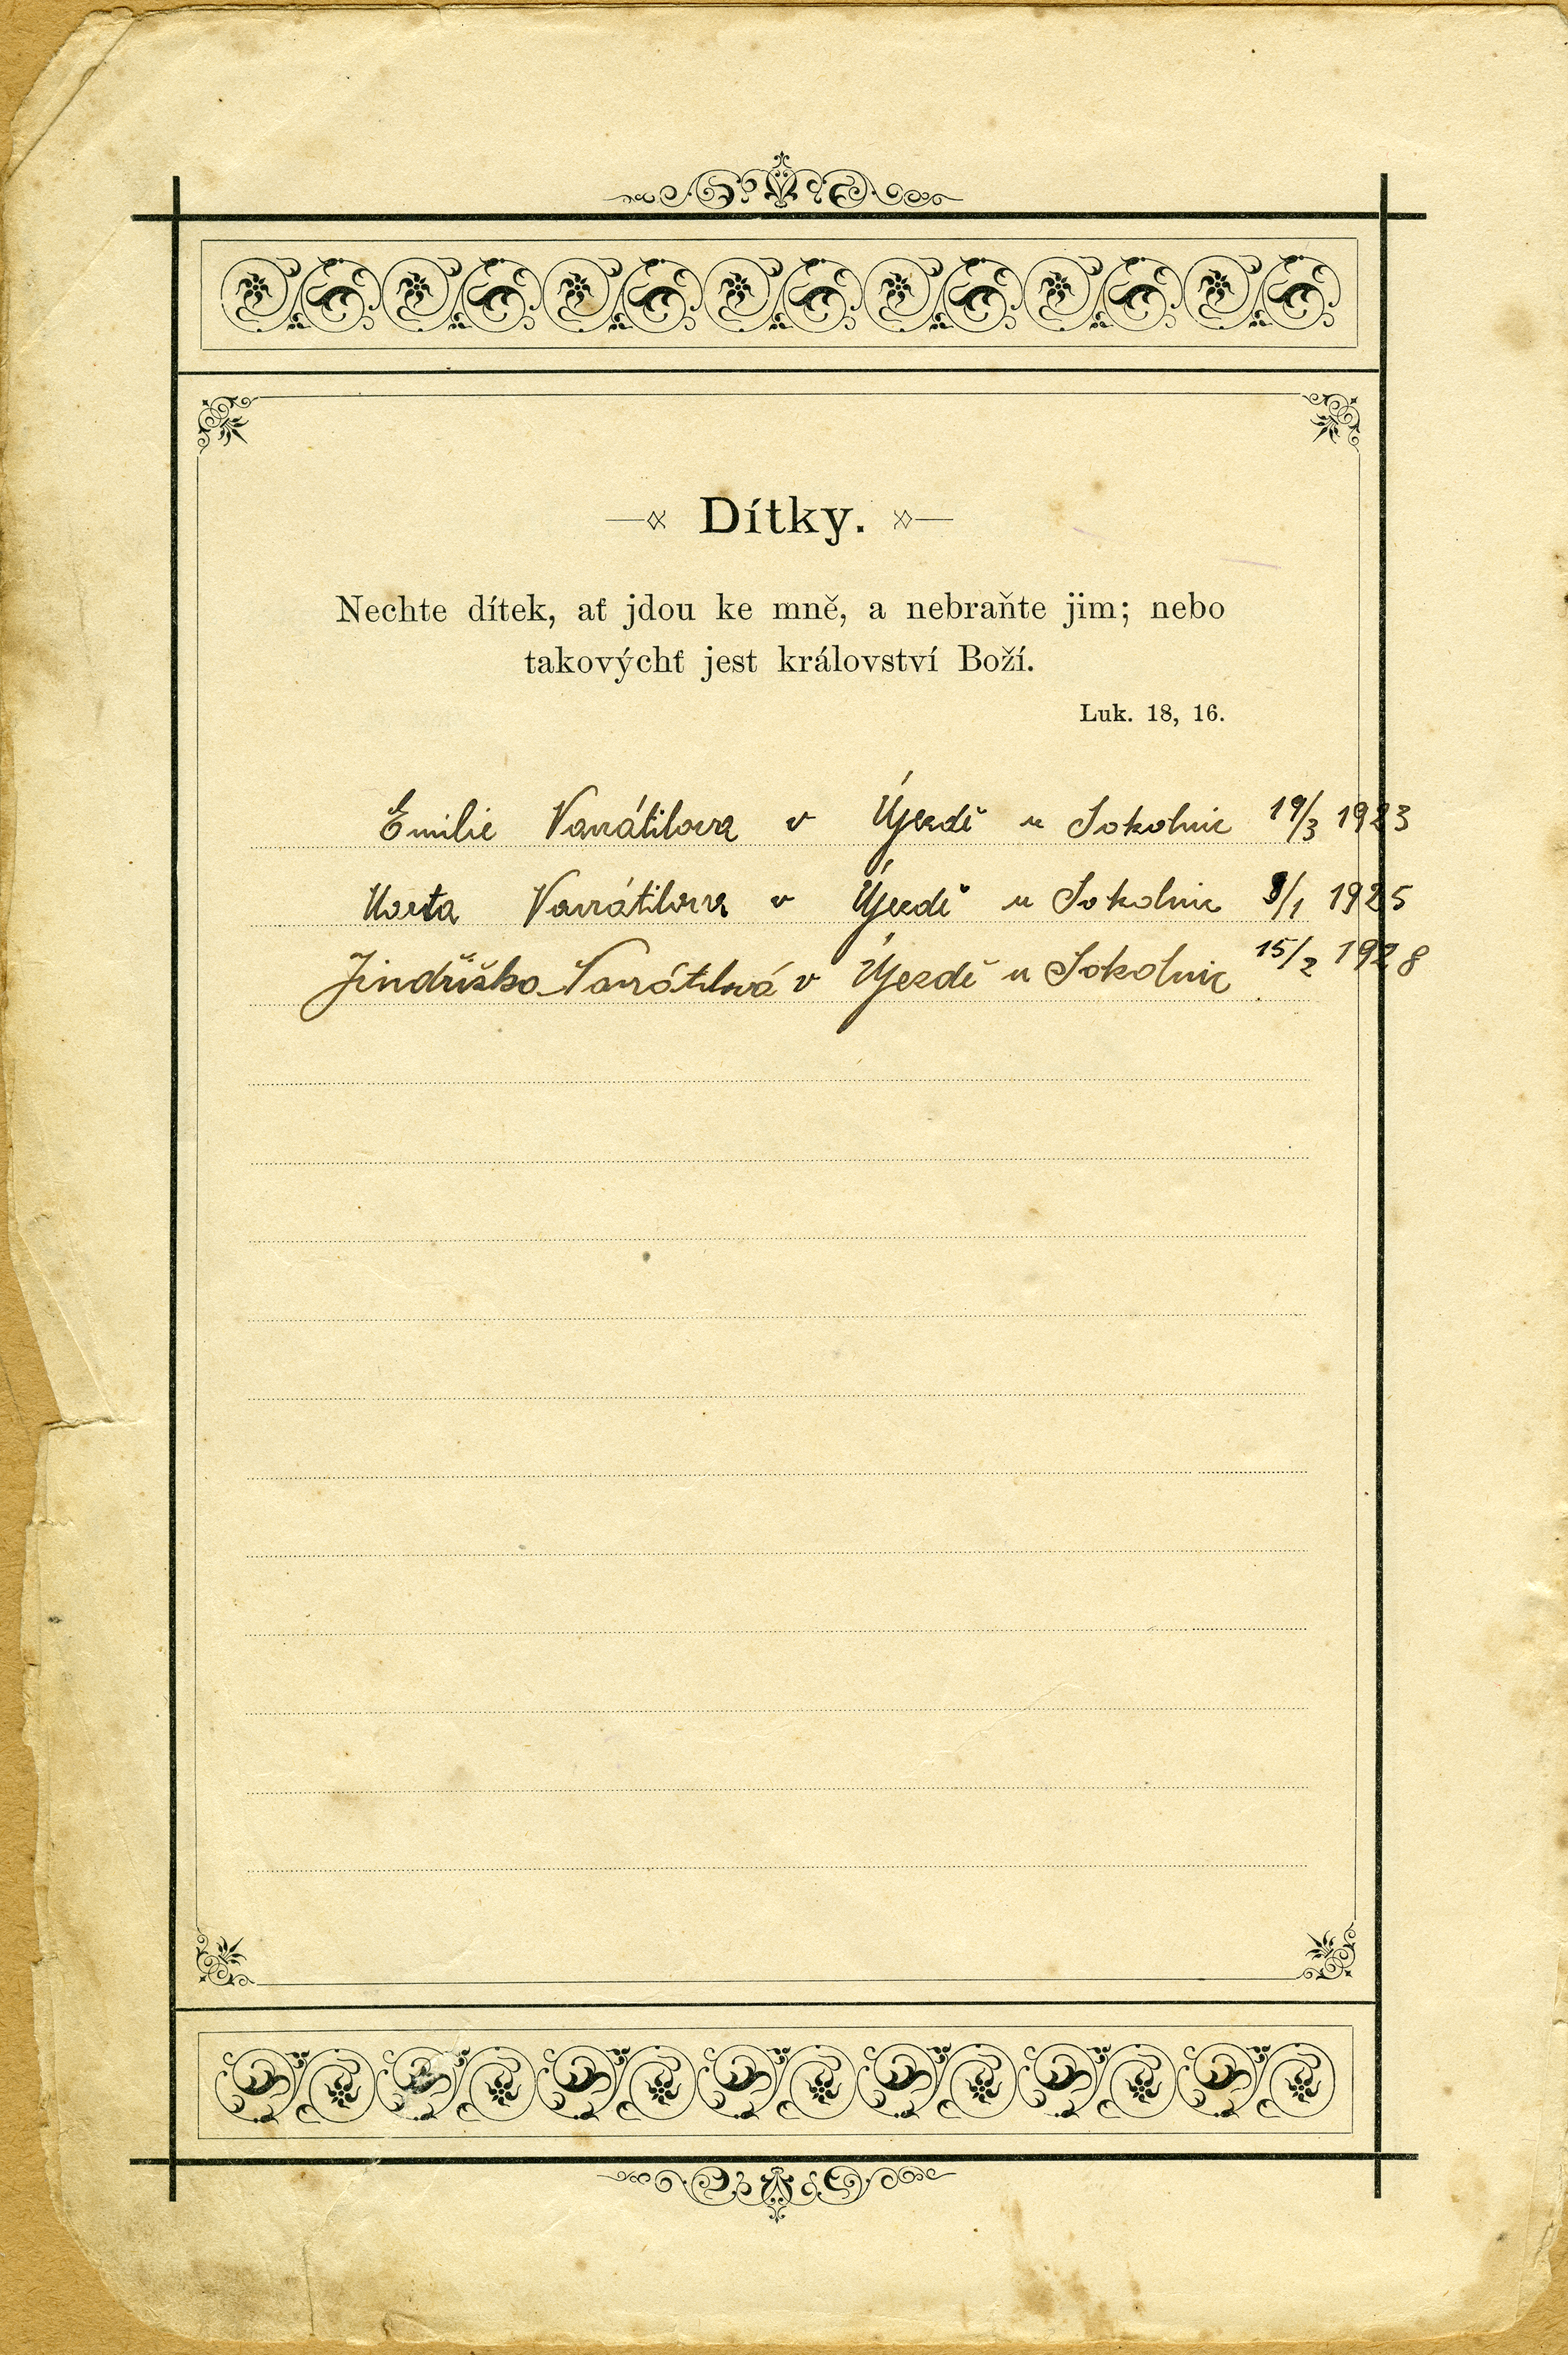 Dítky.
Nechte dítek, ať jdou ke mně, a nebraňte jim; nebo
takovýchť jest království Boží.
Luk. 18, 16.
Emilie Navrátilova v Újezdě u Sokolnic 19/3 1923
Marta Navrátilova v Újezdě u Sokolnic 8/1 1925
Jindřiška Navrátilová v Újezdě u Sokolnic 15/2 1928